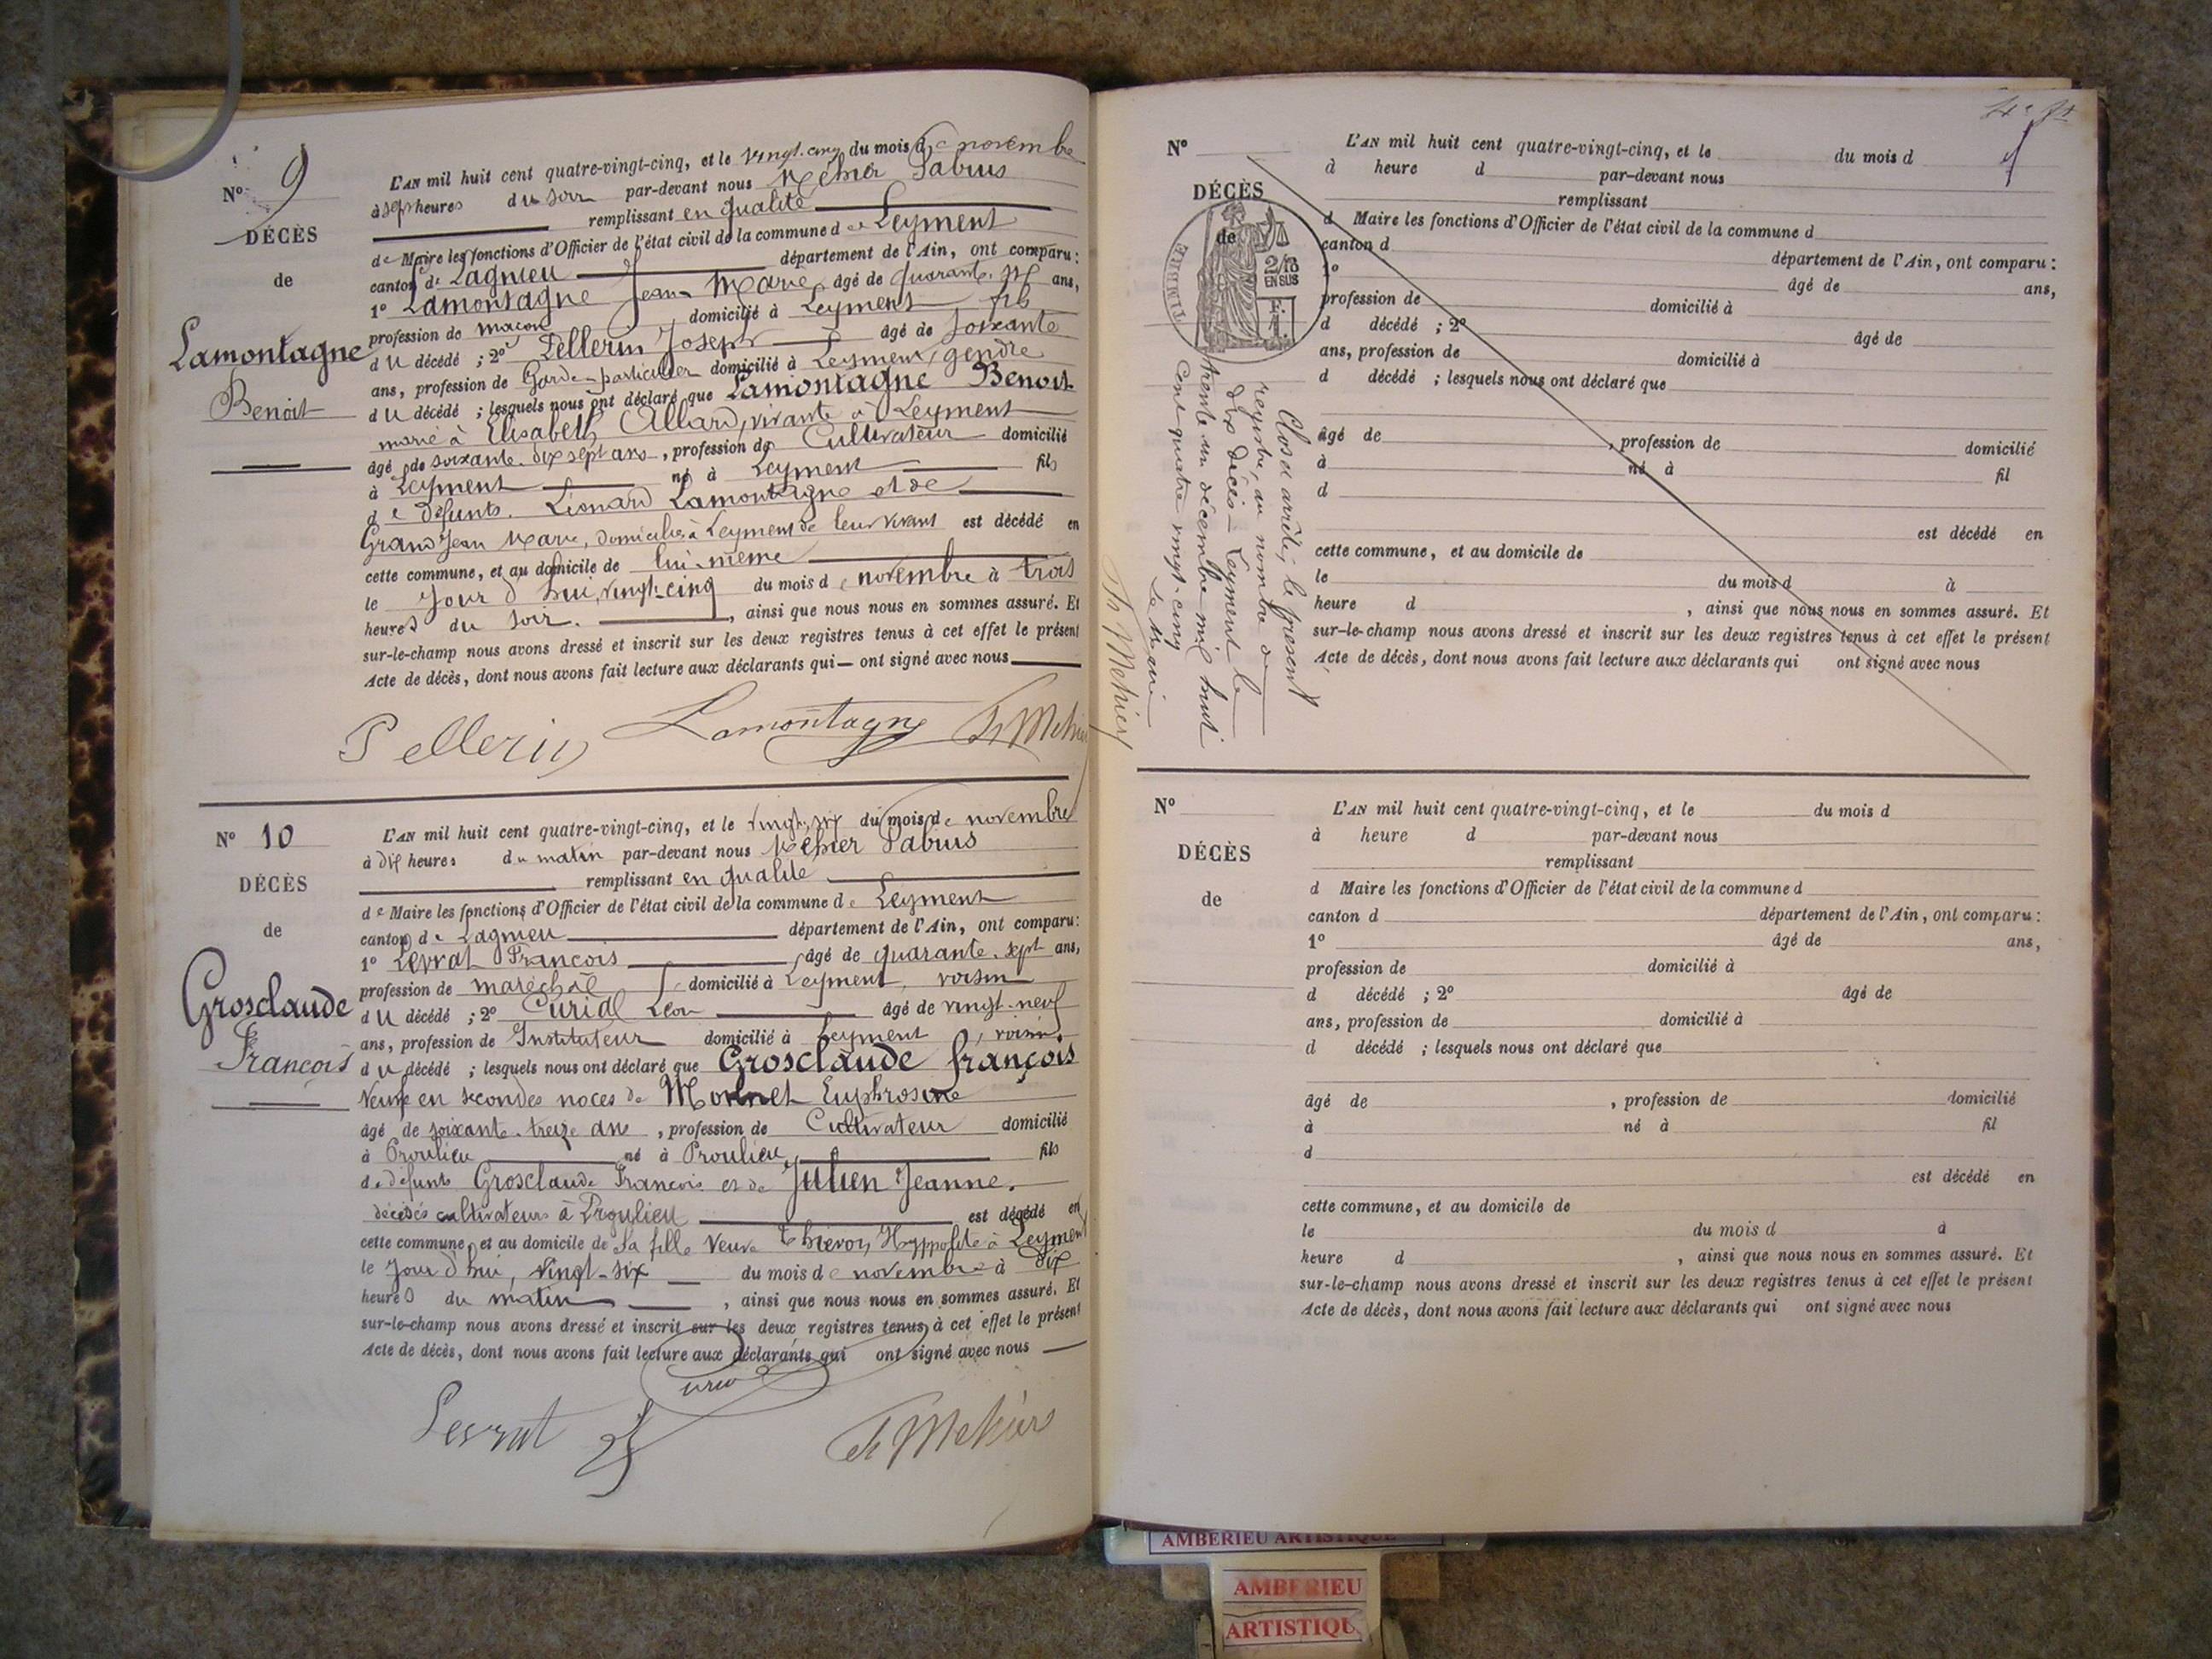 N° 9
DÉCÈS
de
Lamontagne
Benoit
L'AN mil huit cent quatre-vingt-cinq, et le vingt-cinq du mois de novembre
à sept heures du soir par-devant nous Mehier Fabius
remplissant en qualité
de Maire les fonctions d'Officier de l'état civil de la commune de Leyment
canton de Lagnieu département de l'Ain, ont comparu :
1° Lamontagne Jean-Marie, âgé de quarante ans,
profession de maçon domicilié à Leyment fils
du décédé ; 2° Pellerin Joseph âgé de soixante
ans, profession de Garde-particulier domicilié à Leyment, gendre
du décédé ; lesquels nous ont déclaré que Lamontagne Benoit
marié à Elisabeth Allard, vivante à Leyment
âgé de soixante-dix sept ans, profession de Cultivateur domicilié
à Leyment né à Leyment fils
de défunts Léonard Lamontagne et de
Grand Jean Marie, domiciliés à Leyment de leur vivant est décédé en
cette commune, et au domicile de lui-même
le jour d'hui, vingt-cinq du mois de novembre à trois
heures du soir. , ainsi que nous nous en sommes assuré. Et
sur-le-champ nous avons dressé et inscrit sur les deux registres tenus à cet effet le présent
Acte de décès, dont nous avons fait lecture aux déclarants qui — ont signé avec nous
Pellerin Lamontagne F. Mehier
N° 10
DÉCÈS
de
Grosclaude
François
L'AN mil huit cent quatre-vingt-cinq, et le vingt-six du mois de novembre
à dix heures du matin par-devant nous Mehier Fabius
remplissant en qualité
de Maire les fonctions d'Officier de l'état civil de la commune de Leyment
canton de Lagnieu département de l'Ain, ont comparu :
1° Levrat François âgé de quarante-sept ans,
profession de maréchal domicilié à Leyment, voisin
du décédé ; 2° Curial Léon âgé de vingt-neuf
ans, profession de Instituteur domicilié à Leyment, voisin
du décédé ; lesquels nous ont déclaré que Grosclaude françois
Veuf en secondes noces de Monnet Euphrosine
âgé de soixante-treize ans, profession de Cultivateur domicilié
à Proulieu né à Proulieu, fils
de défunts Grosclaude François et de Julien Jeanne.
décédés cultivateurs à Proulieu est décédé en
cette commune, et au domicile de sa fille Veuve Hyppolite à Leyment
le jour d'hui, vingt-six du mois de novembre à dix
heures du matin , ainsi que nous nous en sommes assuré. Et
sur-le-champ nous avons dressé et inscrit sur les deux registres tenus à cet effet le présent
Acte de décès, dont nous avons fait lecture aux déclarants qui ont signé avec nous
Levrat F. Mehier
N°
DÉCÈS
de
2/10
EN SUS
F.
1.
L'AN mil huit cent quatre-vingt-cinq, et le du mois d
à heure d par-devant nous
remplissant
d Maire les fonctions d'Officier de l'état civil de la commune d
canton d département de l'Ain, ont comparu :
1° âgé de ans,
profession de domicilié à
d décédé ; 2° âgé de
ans, profession de domicilié à
d décédé ; lesquels nous ont déclaré que
âgé de , profession de domicilié
à né à fil
d
est décédé en
cette commune, et au domicile de
le du mois d à
heure d , ainsi que nous nous en sommes assuré. Et
sur-le-champ nous avons dressé et inscrit sur les deux registres tenus à cet effet le présent
Acte de décès, dont nous avons fait lecture aux déclarants qui ont signé avec nous
Clos et arrêté, le présent
registre, au nombre de
dix décès — Leyment le
trente un décembre mil huit
cent quatre vingt-cinq
Le Maire
F. Mehier
N°
DÉCÈS
de
L'AN mil huit cent quatre-vingt-cinq, et le du mois d
à heure d par-devant nous
remplissant
d Maire les fonctions d'Officier de l'état civil de la commune d
canton d département de l'Ain, ont comparu :
1° âgé de ans,
profession de domicilié à
d décédé ; 2° âgé de
ans, profession de domicilié à
d décédé ; lesquels nous ont déclaré que
âgé de , profession de domicilié
à né à fil
d
est décédé en
cette commune, et au domicile de
le du mois d à
heure d , ainsi que nous nous en sommes assuré. Et
sur-le-champ nous avons dressé et inscrit sur les deux registres tenus à cet effet le présent
Acte de décès, dont nous avons fait lecture aux déclarants qui ont signé avec nous
AMBERIEU ARTISTIQUE
AMBERIEU
ARTISTIQU